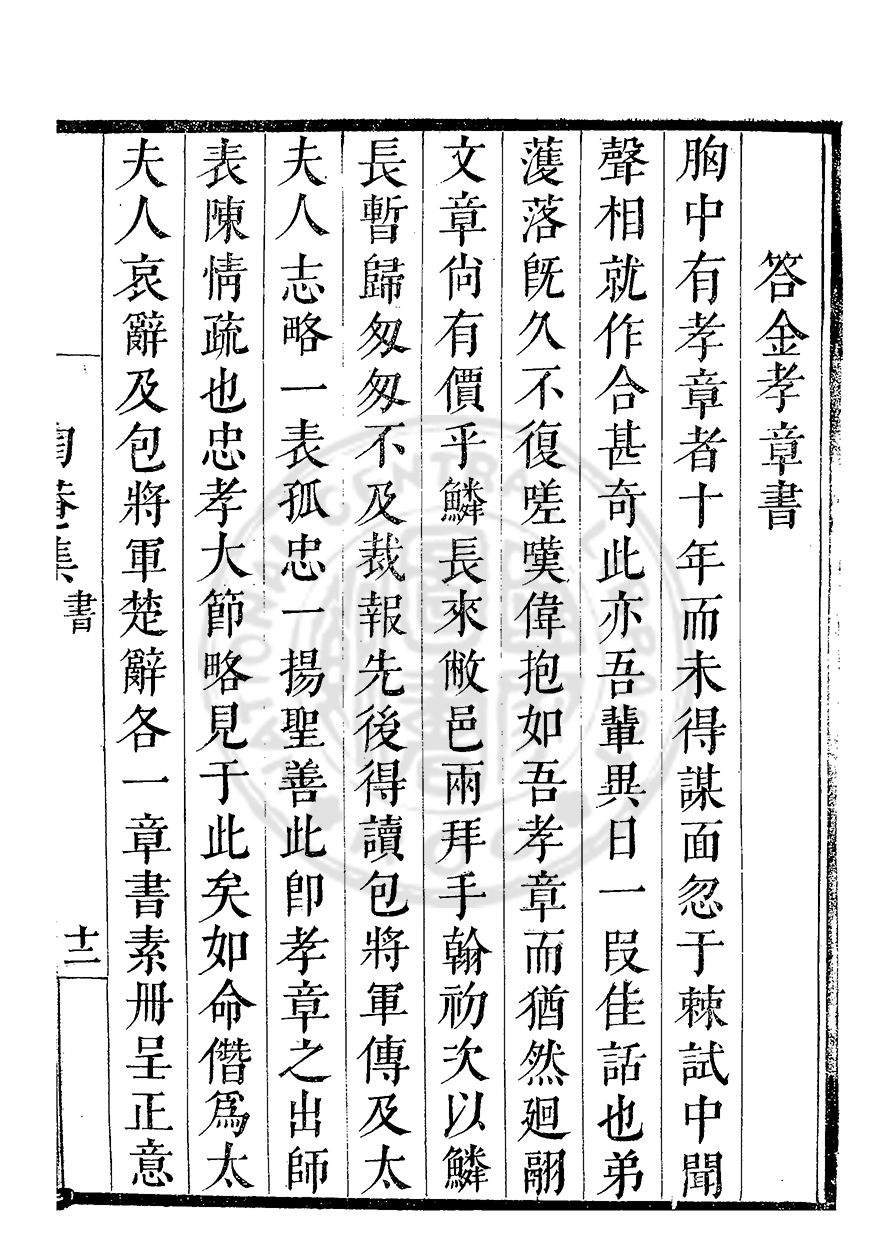 答金孝章書
胸中有孝章者十年而未得謀面忽于棘試中聞
聲相就作合甚奇此亦吾輩異日一段佳話也弟
濩落旣久不復嗟嘆偉抱如吾孝章而猶然廻翮
文章尙有價乎鱗長來敝邑兩拜手翰初次以鱗
長暫歸匆匆不及裁報先後得讀包將軍傳及太
夫人志略一表孤忠一揚聖善此卽孝章之出師
表陳情疏也忠孝大節略見于此矣如命僭爲太
夫人哀辭及包將軍楚辭各一章書素冊呈正意
陶菴集 書 十二